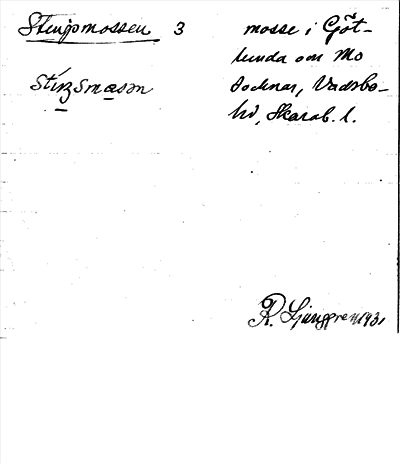 Stenpsmossen 3
mosse i Göt-
lunda om Mo
socknar, Vadsbo
hd, Skarab. l.
R. Ljunggren 1931